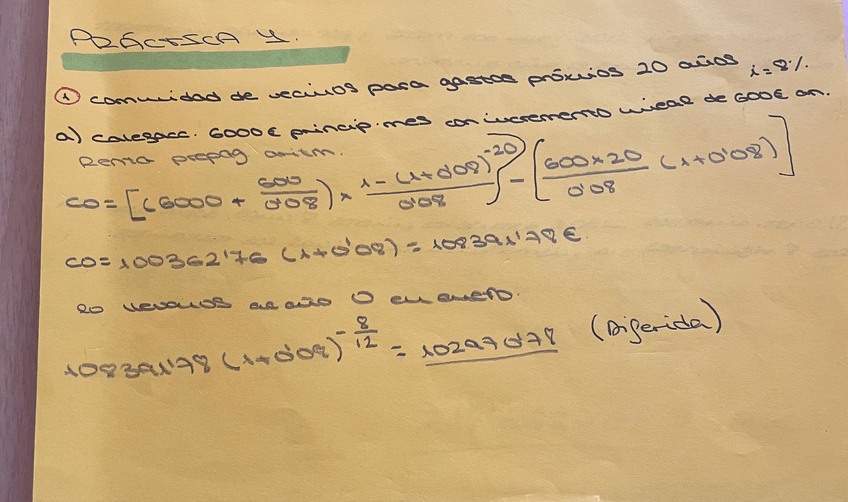 PRÁCTICA 4.
① comunidad de vecinos para gastos próximos 20 años i=8%.
a) calefacc. 6000€ princip. mes con incremento lineal de 600€ an.
Renta prepag aritm.
C0 = [(6000 + 600/0'08) × 1-(1+0'08)^-20/0'08] - [600×20/0'08 (1+0'08)]
C0 = 100362'76 (1+0'08) = 108391'78€.
lo llevamos al año 0 en enero.
108391'78 (1+0'08)^-8/12 = 102970'78 (Diferida)